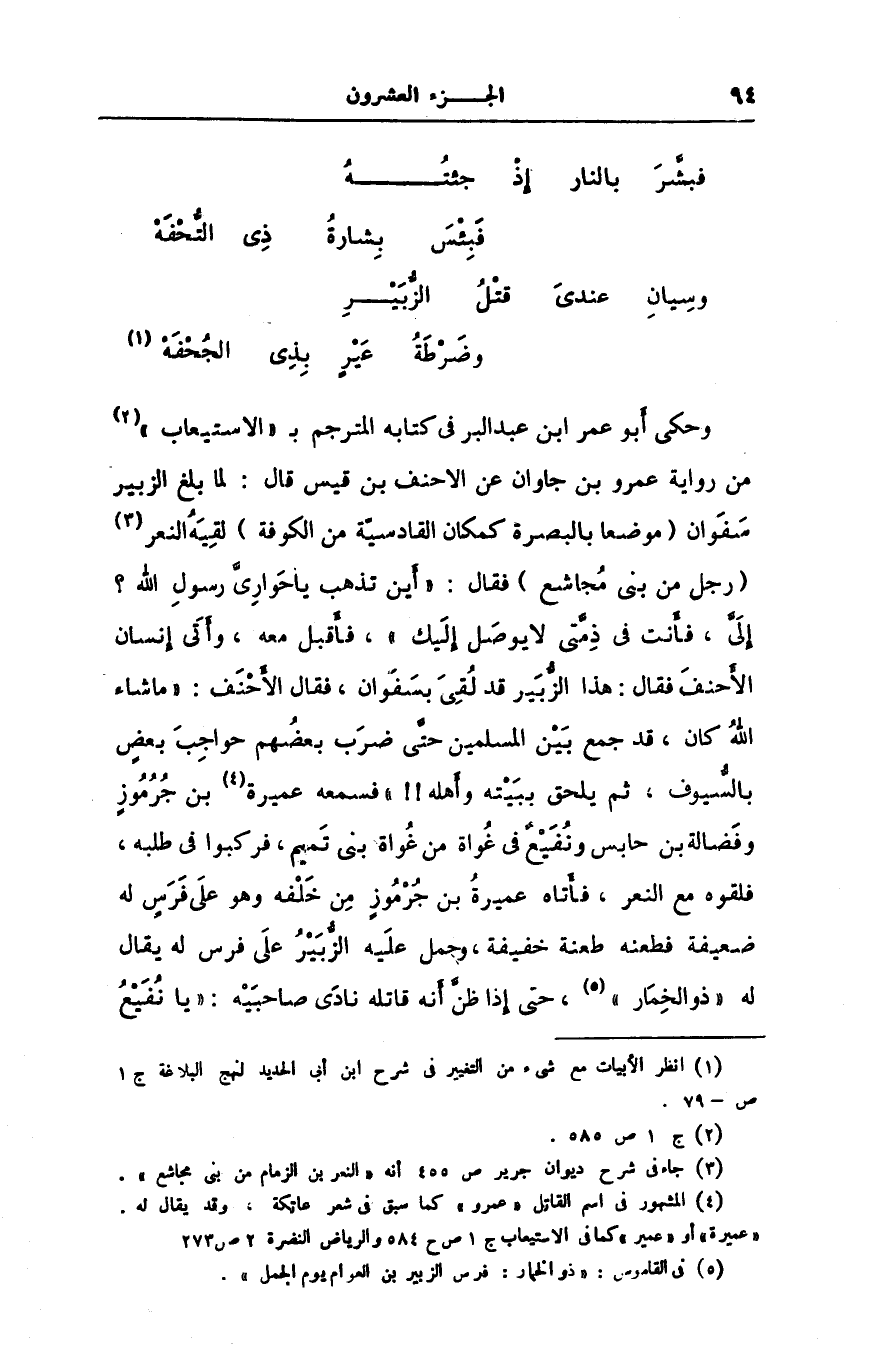 ٩٤ الجـــزء العشرون
فبشَّرَ بالنار إذْ جئتُـــــــهُ
فَبِئْسَ بِشارةُ ذِى التُّحْفَهْ
وسِيانِ عندىَ قتْلُ الزُّبَيْـــرِ
وضَرْطَةُ عَيْرٍ بِذِى الجُحْفَهْ (١)
وحكى أَبو عمر ابن عبدالبر فى كتابه المترجم بـ «الاستيعاب»(٢)
من رواية عمرو بن جاوان عن الاحنف بن قيس قال : لما بلغ الزبير
سَفَوان ( موضعا بالبصرة كمكان القادسيّة من الكوفة ) لقِيَهُ النعر(٣)
( رجل من بنى مُجاشع ) فقال : «أَين تذهب ياحَوارِىَّ رسولِ الله ؟
إلَىَّ ، فأَنت فى ذِمَّتى لايوصَل إلَيك» ، فأَقبل معه ، وأَتى إنسان
الأَحنفَ فقال : هذا الزُّبَير قد لُقِىَ بسَفَوان ، فقال الأَحْنَف : «ماشاء
اللهُ كان ، قد جمع بَيْن المسلمين حتَّى ضرَب بعضُهم حواجِبَ بعضٍ
بالسُّيوف ، ثم يلحق ببَيْته وأَهله!!» فسمعه عميرة(٤) بن جُرْمُوزٍ
وفَضالة بن حابس ونُفَيْعٌ فى غُواة من غُواة بنى تَميم ، فركبوا فى طلبه ،
فلقوه مع النعر ، فأَتاه عميرةُ بن جُرْمُوزٍ مِن خَلْفه وهو على فَرَسٍ له
ضعيفة فطعنه طعنة خفيفة ، وحمل علَيه الزُّبَيْرُ علَى فرس له يقال
له «ذوالخِمَار» (٥) ، حتى إذا ظنَّ أَنه قاتله نادَى صاحبَيْه : «يا نُفَيْعُ
(١) انظر الأبيات مع شىء من التغيير فى شرح ابن أبى الحديد لنهج البلاغة ج ١
ص – ٧٩ .
(٢) ج ١ ص ٥٨٥ .
(٣) جاء فى شرح ديوان جرير ص ٤٥٥ أنه «النعر بن الزمام من بنى مجاشع» .
(٤) المشهور فى اسم القاتل «عمرو» كما سبق فى شعر عاتكة ، وقد يقال له .
«عميرة» أو «عمير» كما فى الاستيعاب ج ١ ص ح ٥٨٤ والرياض النضرة ٢ ص ٢٧٣
(٥) فى القاموس : «ذو الخمار : فرس الزبير بن العوام يوم الجمل» .